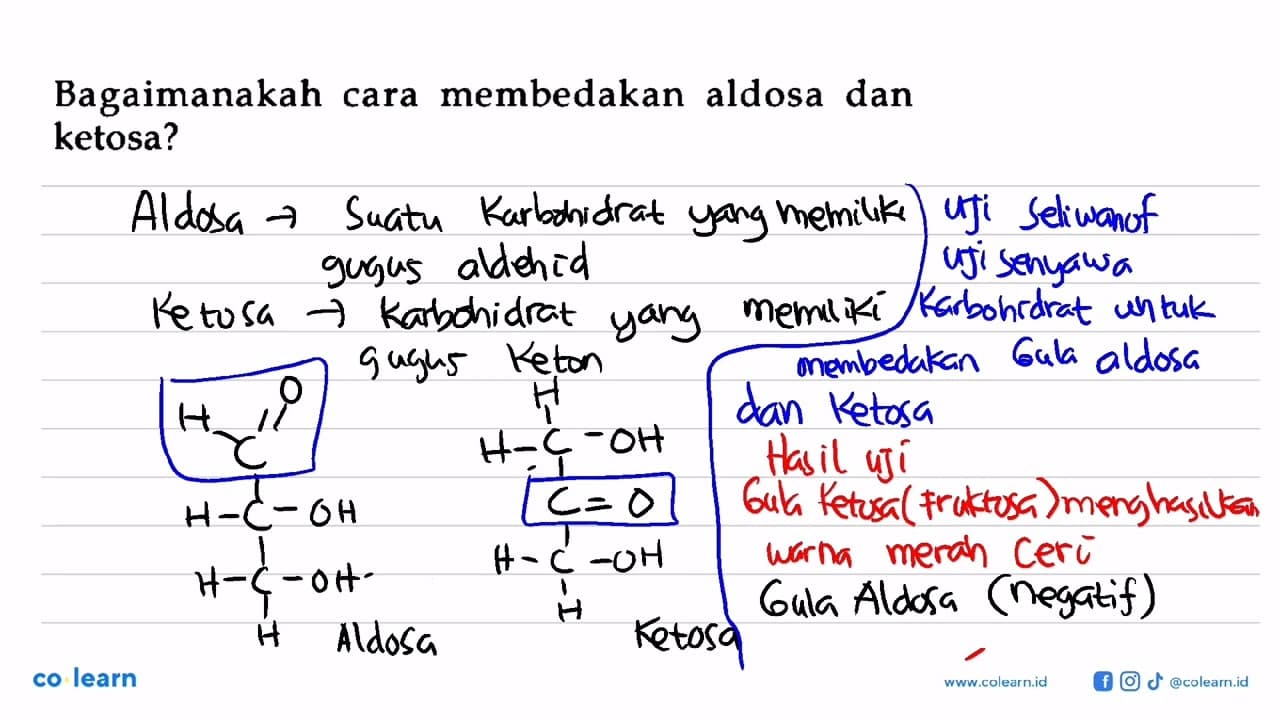 Bagaimanakah cara membedakan aldosa dan
ketosa?
Aldosa → Suatu Karbohidrat yang memiliki
gugus aldehid
Ketosa → Karbohidrat yang memiliki
gugus Keton
H O
C
H-C-OH
H-C-OH
H
Aldosa
H
H-C-OH
C=O
H-C-OH
H
Ketosa
Uji Seliwanof
Uji senyawa
Karbohidrat untuk
membedakan Gula aldosa
dan Ketosa
Hasil uji
Gula Ketosa (Fruktosa) menghasilkan
warna merah Ceri
Gula Aldosa (negatif)
co learn
www.colearn.id
@colearn.id